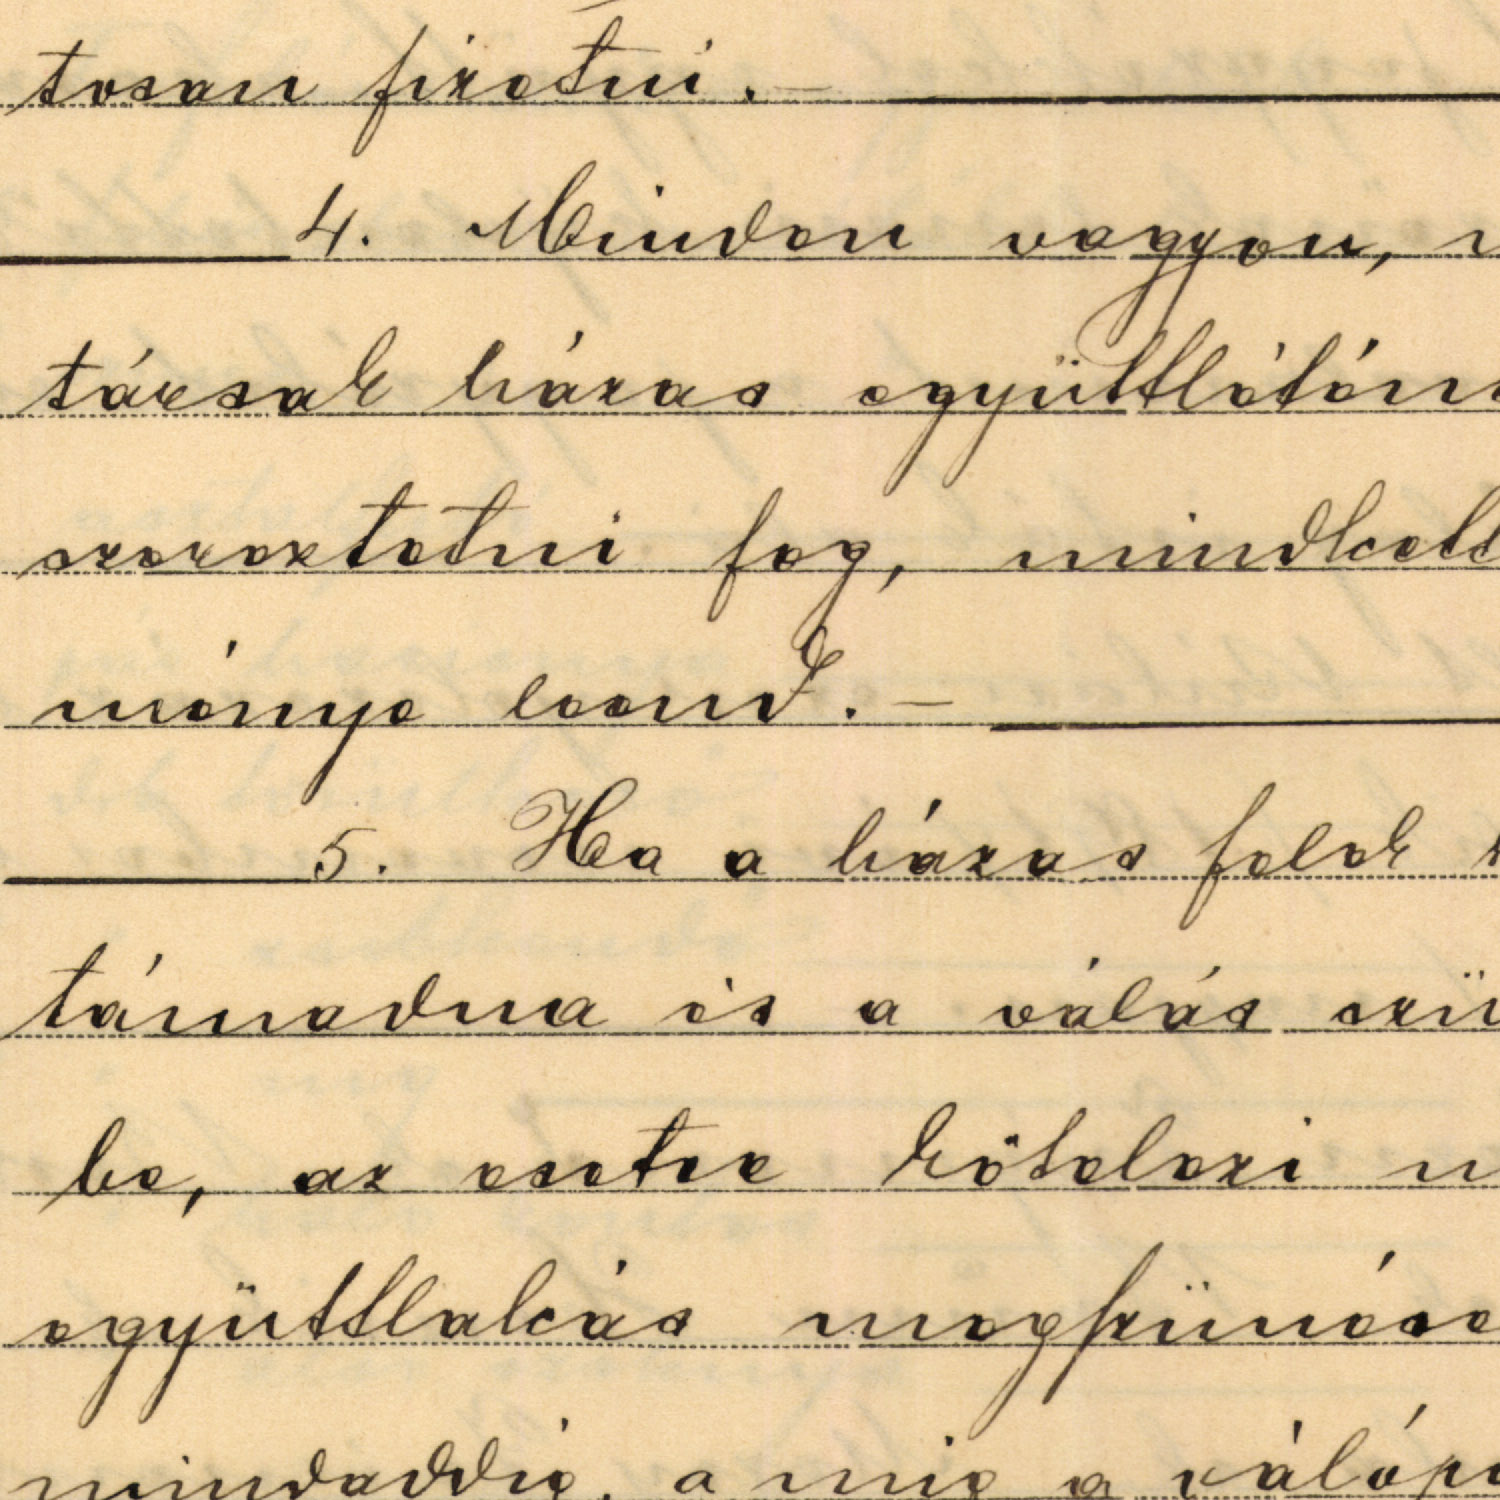 tosan fizetni. –
4. Minden vagyon,
társak házas együttlétén
szereztetni fog, mindkett
ménye leend. –
5. Ha a házas felek
támadna és a válás szü
be, az esetre kötelezi
együttlakás megszünése
mindaddig, a mig a válópe